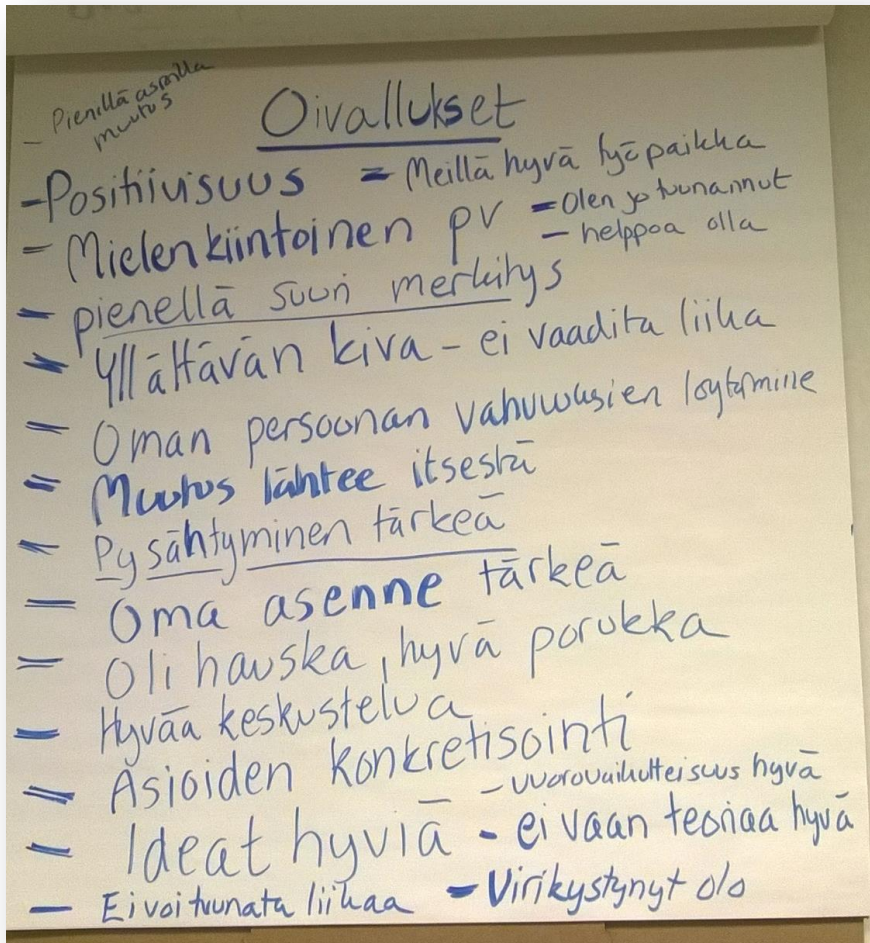 - Pienillä asioilla
muutos
Oivallukset
- Positiivisuus = Meillä hyvä työpaikka
- Mielenkiintoinen pv = Olen jo tuunannut
- helppoa olla
- pienellä suuri merkitys
- Yllättävän kiva - ei vaadita liika
- Oman persoonan vahvuuksien löytämine
- Muutos lähtee itsestä
- Pysähtyminen tärkeä
- Oma asenne tärkeä
- Oli hauska, hyvä porukka
- Hyvää keskustelua
- Asioiden konkretisointi
- vuorovaikutteisuus hyvä
- Ideat hyviä - ei vaan teoriaa hyvä
- Ei voi tuunata liikaa - Virikystynyt olo